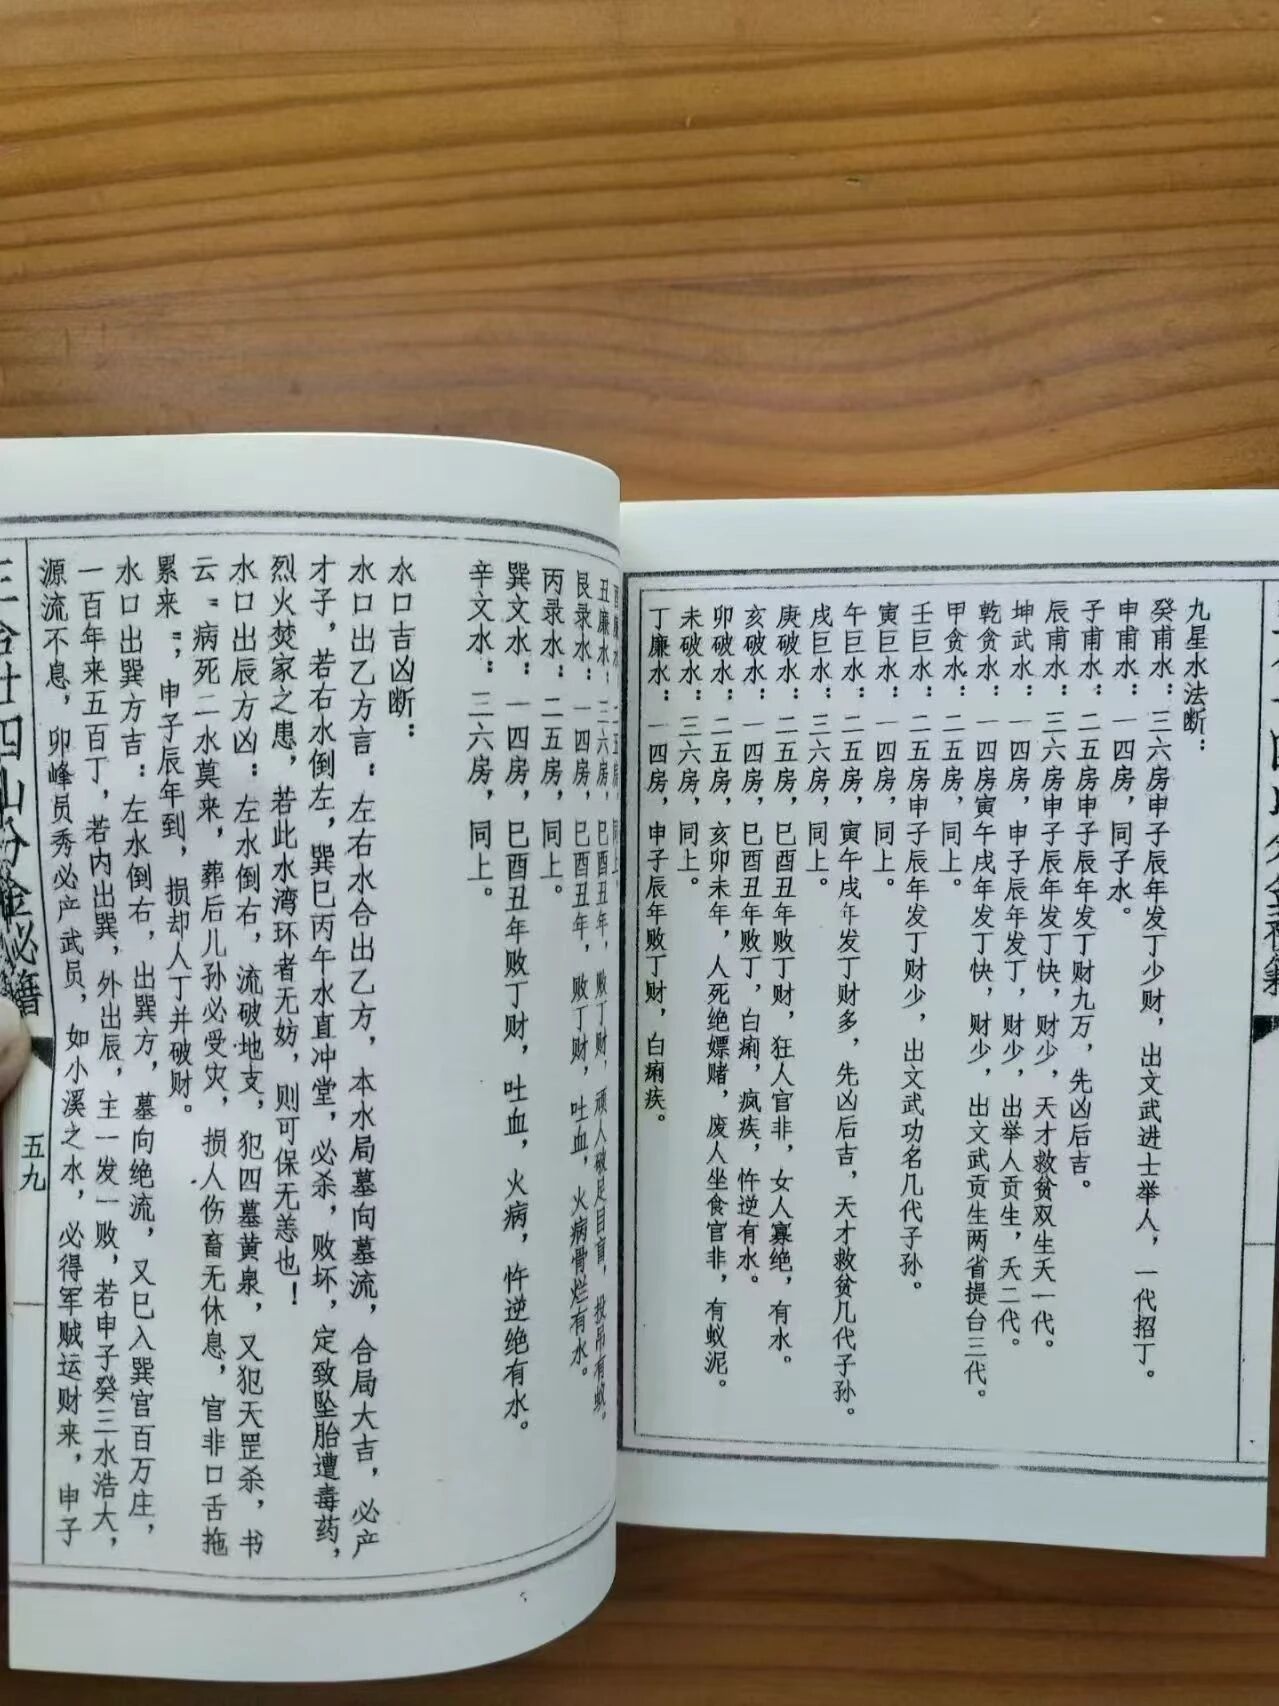 九星水法断：
癸甫水：三六房申子辰年发丁少财，出文武进士举人，一代招丁。
申甫水：一四房，同子水。
子甫水：二五房申子辰年发丁财九万，先凶后吉。
辰甫水：三六房申子辰年发丁快，财少，天才救贫双生夭一代。
坤武水：一四房，申子辰年发丁，财少，出举人贡生，夭二代。
乾贪水：一四房寅午戌年发丁快，财少，出文武贡生两省提台三代。
甲贪水：二五房，同上。
壬巨水：二五房申子辰年发丁财少，出文武功名几代子孙。
寅巨水：一四房，同上。
午巨水：二五房，寅午戌年发丁财多，先凶后吉，天才救贫几代子孙。
戌巨水：三六房，同上。
庚破水：二五房，巳酉丑年败丁财，狂人官非，女人寡绝，有水。
亥破水：一四房，巳酉丑年败丁，白痢，疯疾，忤逆有水。
卯破水：二五房，亥卯未年，人死绝嫖赌，废人坐食官非，有蚁泥。
未破水：三六房，同上。
丁廉水：一四房，申子辰年败丁财，白痢疾。
廉水：二五房，同上。
丑廉水：三六房，巳酉丑年，败丁财，顽人破足目盲，投吊有蚁。
艮录水：一四房，巳酉丑年，败丁财，吐血，火病骨烂有水。
丙录水：二五房，同上。
巽文水：一四房，巳酉丑年败丁财，吐血，火病，忤逆绝有水。
辛文水：三六房，同上。
水口吉凶断：
水口出乙方言：左右水合出乙方，本水局墓向墓流，合局大吉，必产
才子，若右水倒左，巽巳丙午水直冲堂，必杀，败坏，定致坠胎遭毒药，
烈火焚家之患，若此水湾环者无妨，则可保无恙也！
水口出辰方凶：左水倒右，流破地支，犯四墓黄泉，又犯天罡杀，书
云〝病死二水莫来，葬后儿孙必受灾，损人伤畜无休息，官非口舌拖
累来〞，申子辰年到，损却人丁并破财。
水口出巽方吉：左水倒右，出巽方，墓向绝流，又巳入巽宫百万庄，
一百年来五百丁，若内出巽，外出辰，主一发一败，若申子癸三水浩大，
源流不息，卯峰员秀必产武员，如小溪之水，必得军贼运财来，申子
三合廿四山分金秘籍
五九